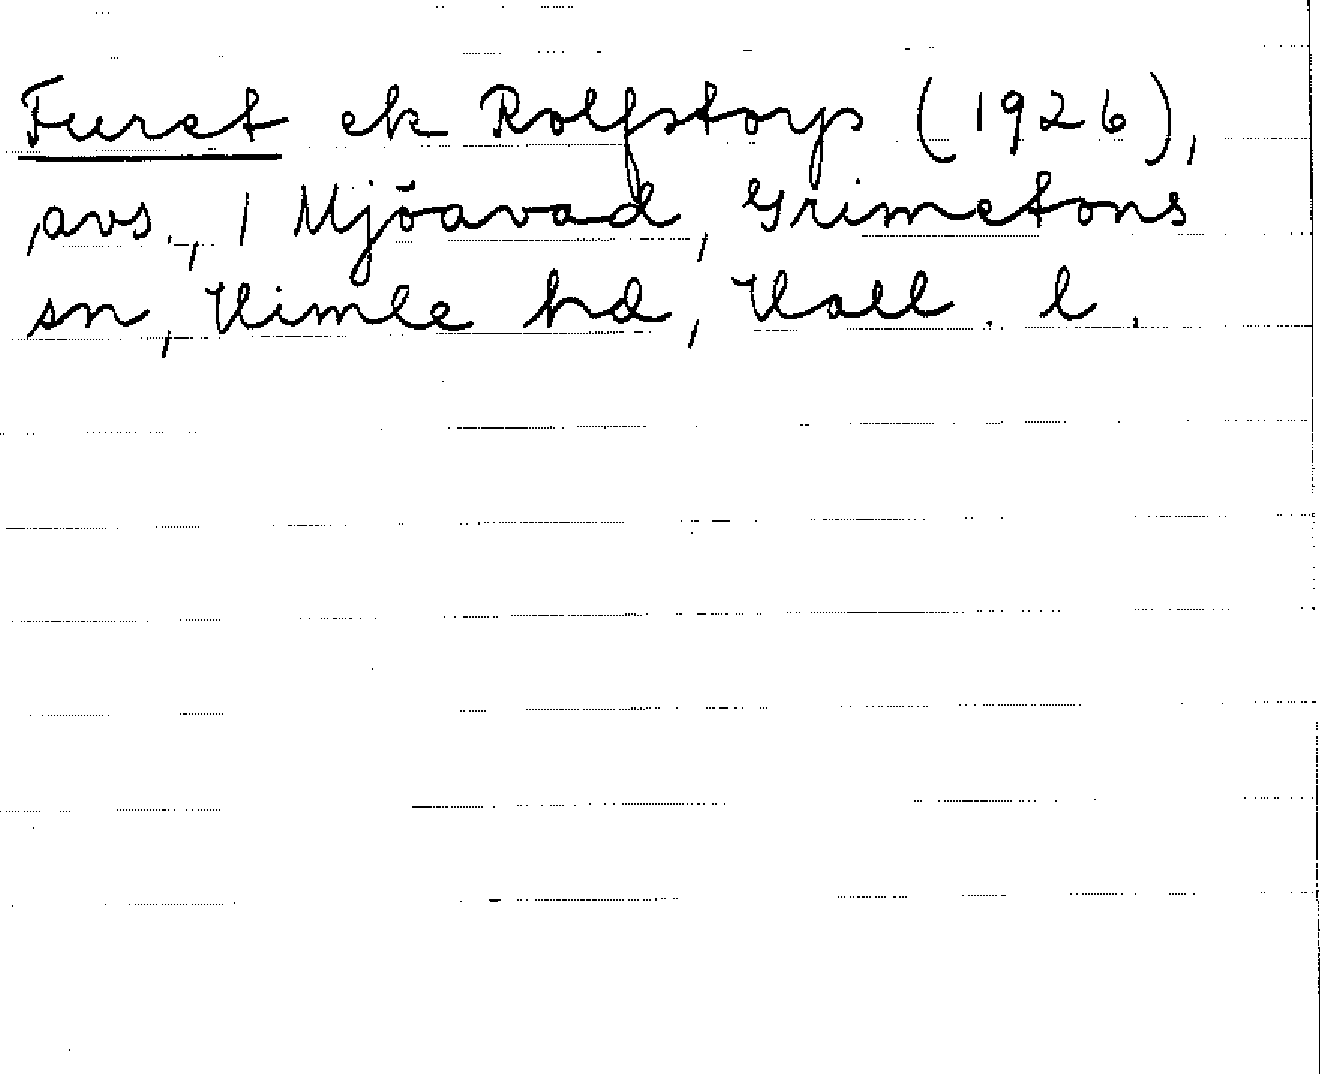 Furet ek Rolfstorps (1926),
avs., i Mjöavad, Grimetons
sn, Himle hd, Hall. l.